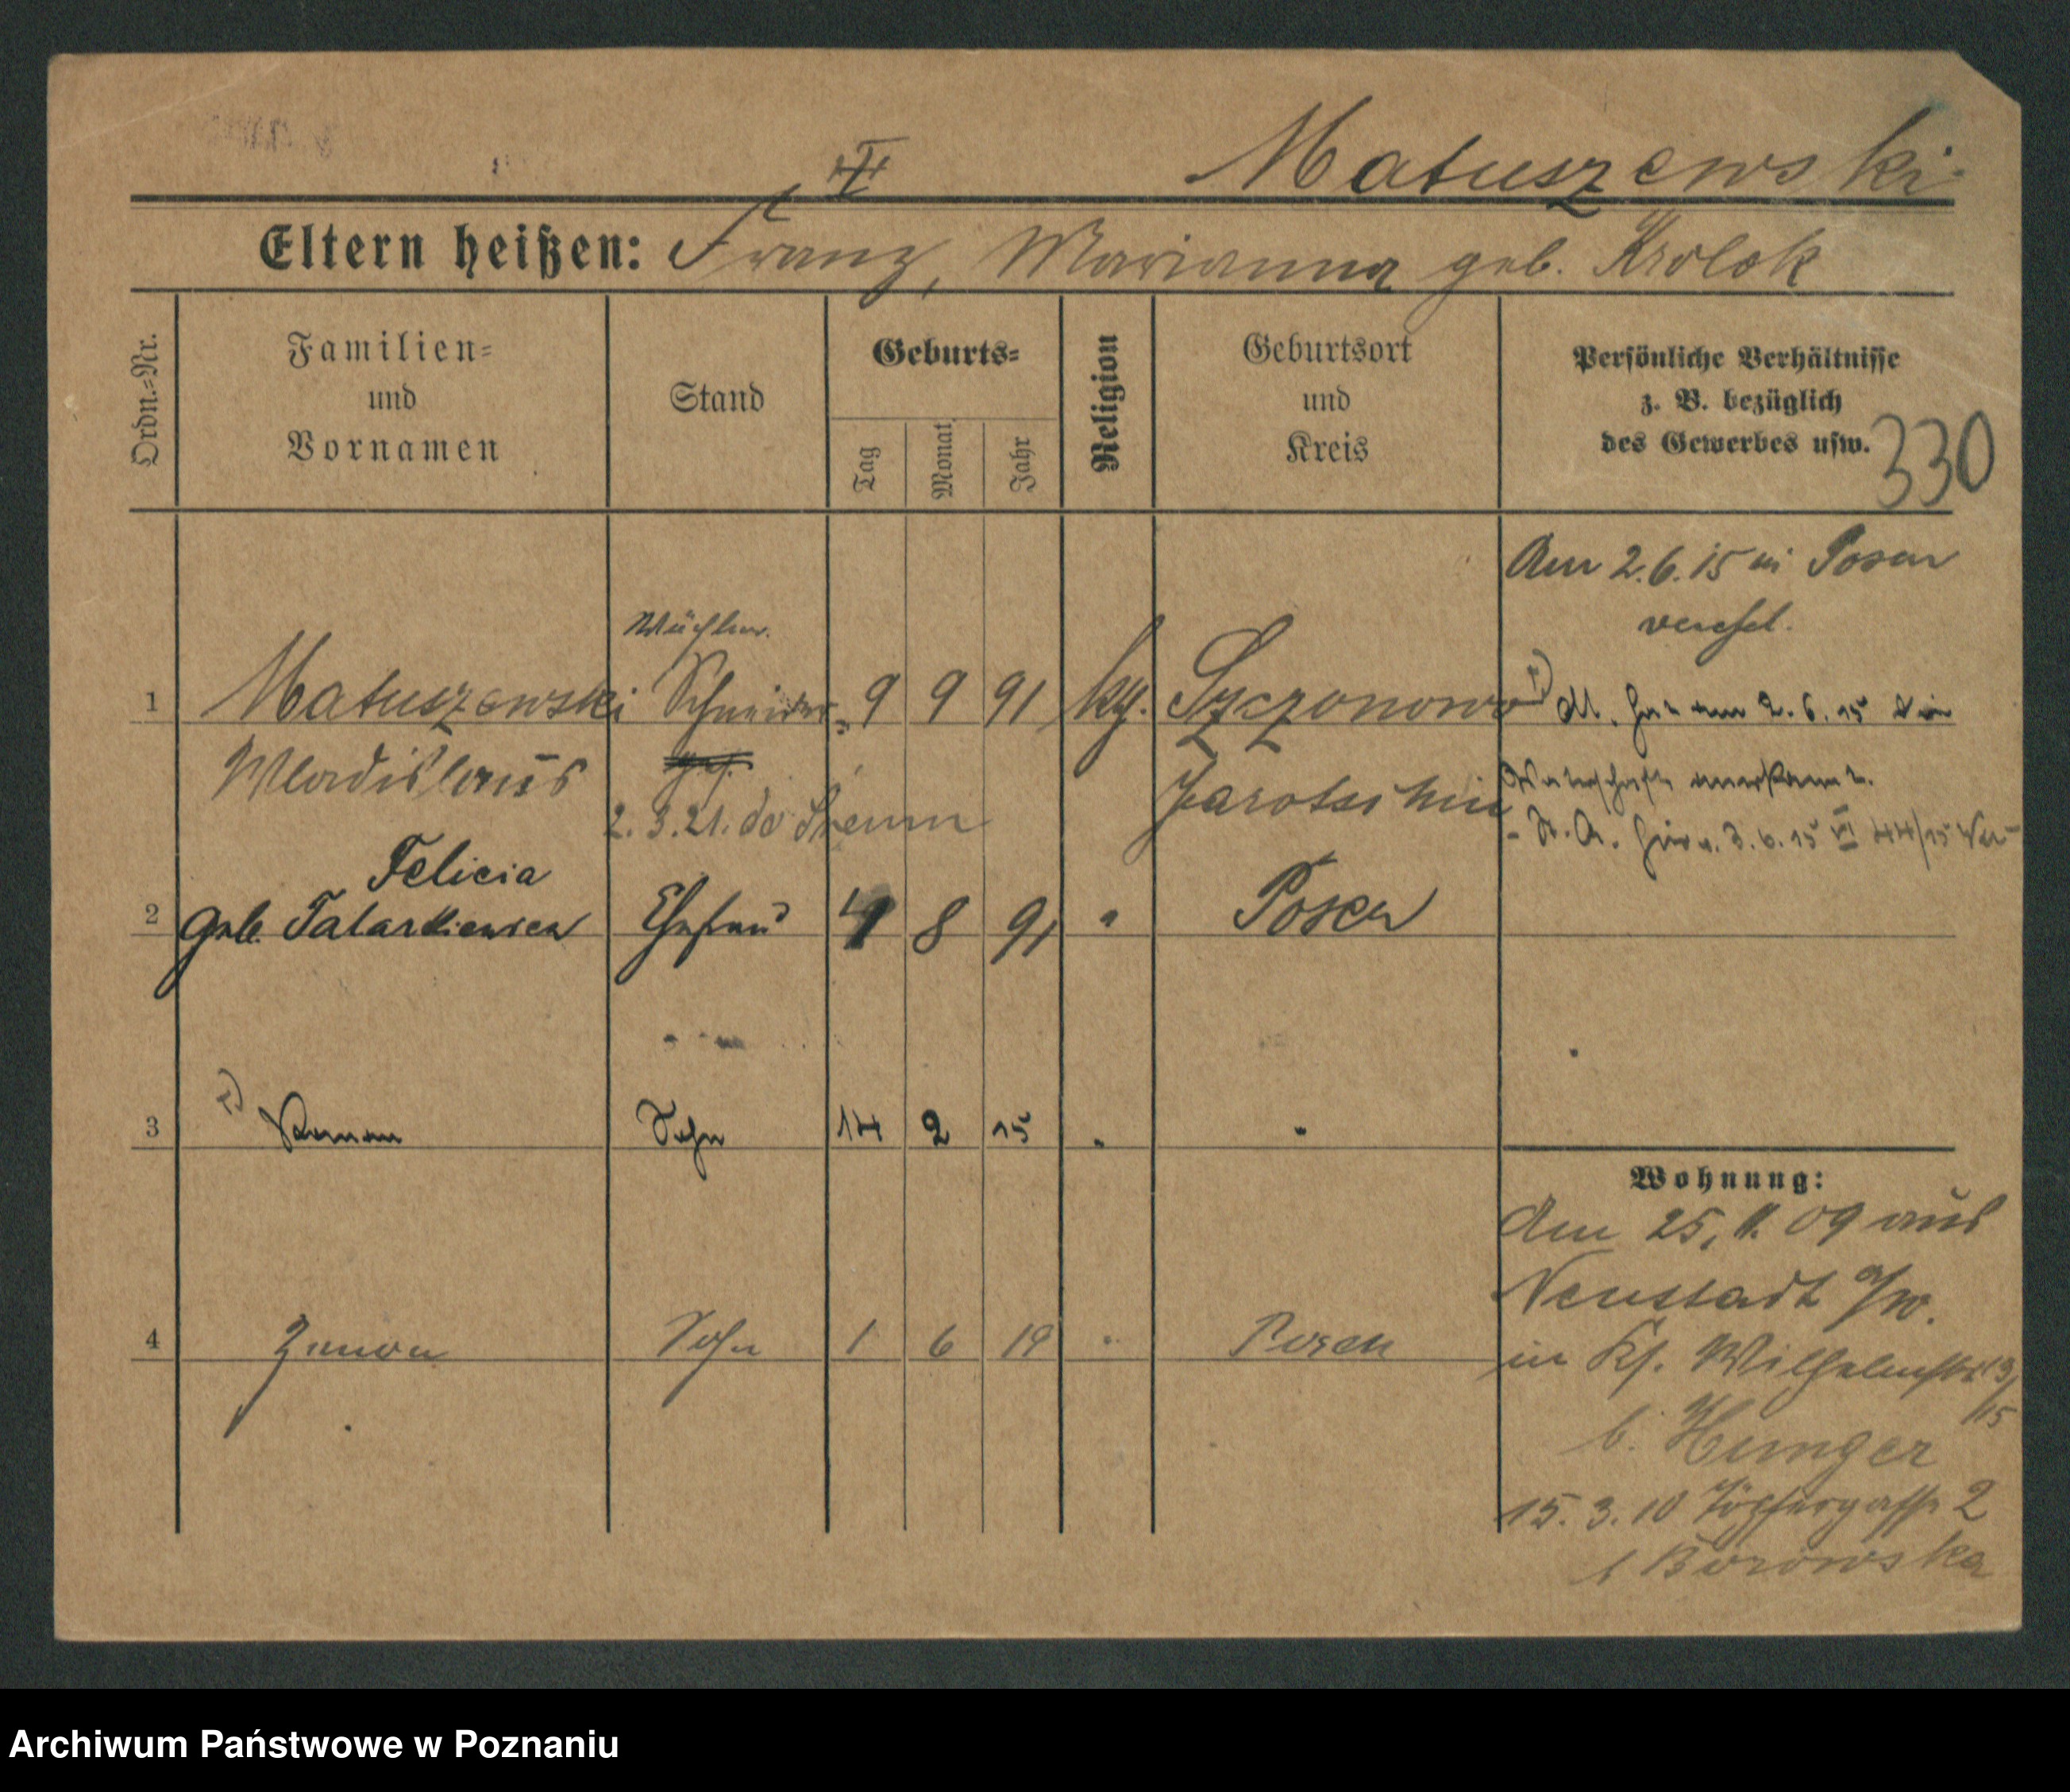 III Matuszewski
Eltern heißen: Franz, Marianna geb. Krolok
Ordn.=Nr.
Familien=
und
Vornamen
Stand
Geburts=
Tag
Monat
Jahr
Religion
Geburtsort
und
Kreis
Persönliche Verhältnisse
z. B. bezüglich
des Gewerbes usw.
330
Am 2.6.15 in Posen
verehel.
Wächter.
1 Matuszewski Schneider 9 9 91 Szczonowo
M. hat am 2.6.15 die
Wladislaus Jarotschin
Vaterschaft anerkannt.
2.3.21. do Śrem
Felicia
2 geb. Tatarkiewicz Ehefrau 4 8 91 " Posen
3 Roman Sohn 14 2 15 " "
4 Zenon Sohn 1 6 19 " Posen
Wohnung:
Am 25.11.09 aus
Neustadt a/W.
in Kf. Wilhelmstr 13/15
b. Hunger
15.3.10 Töpfergasse 2
b Borowska
Archiwum Państwowe w Poznaniu